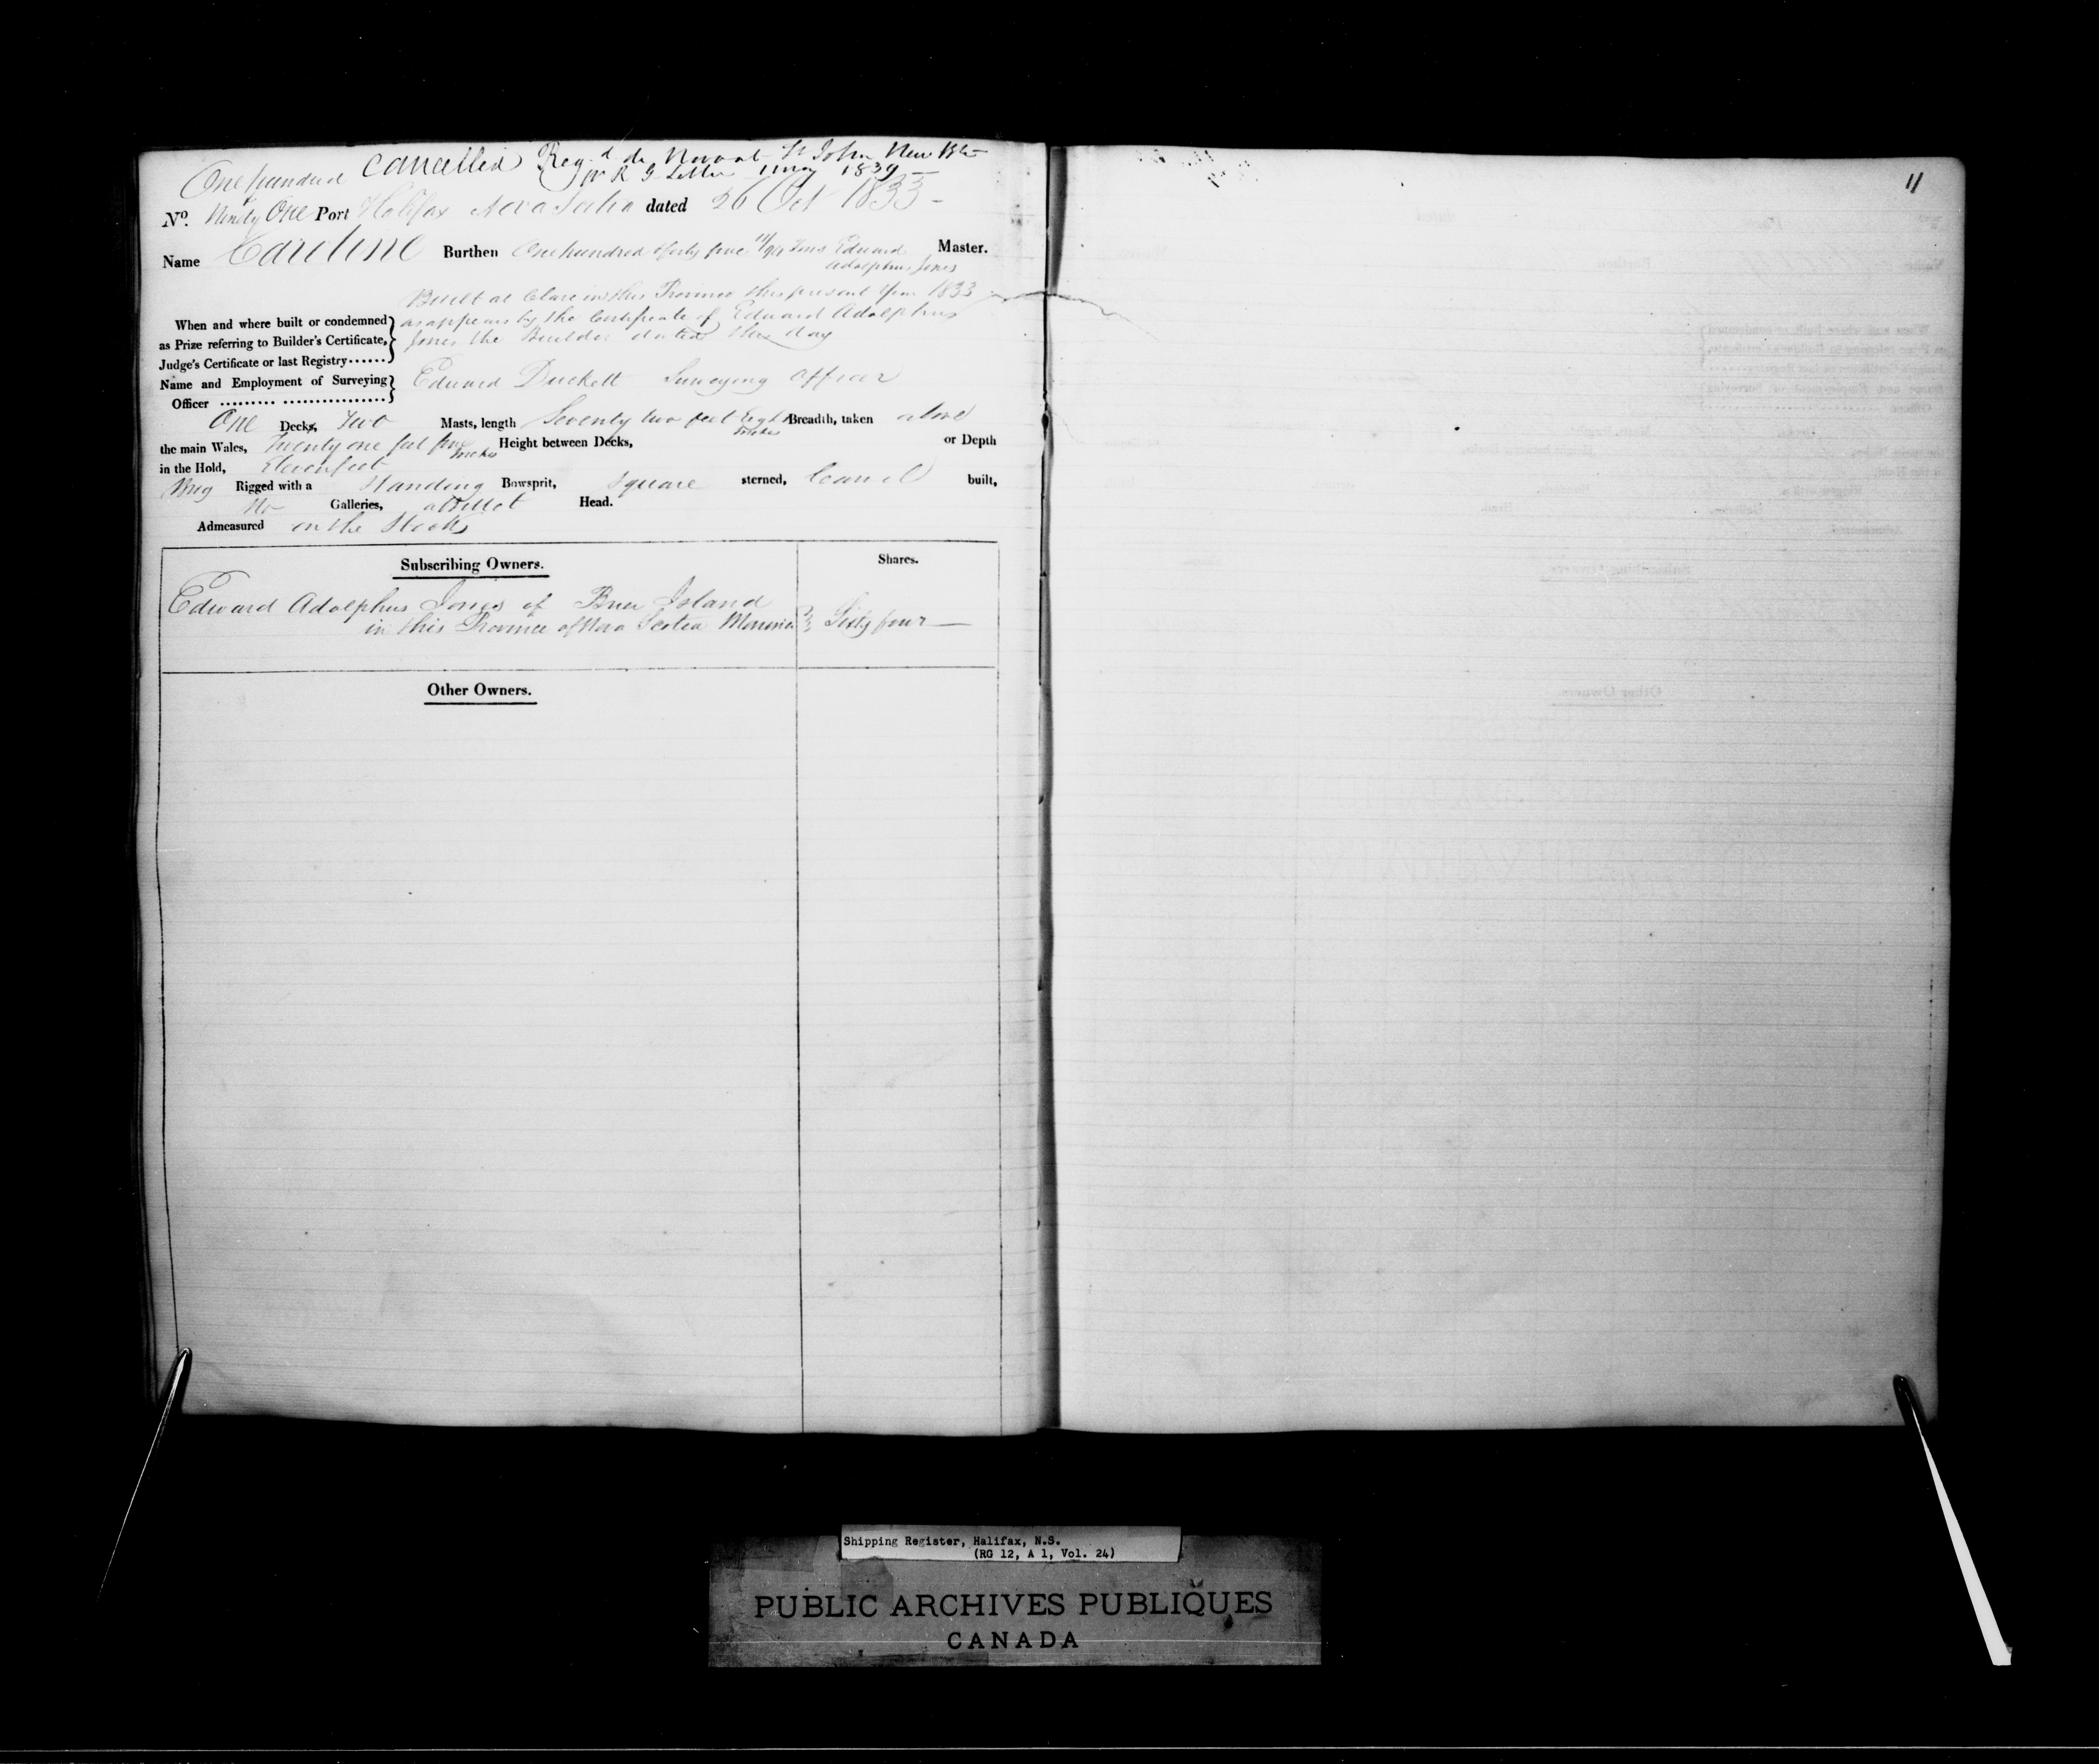 Cancelled Reg.d de Novo at St John New Bk
pr R G Letter 11 May 1839
One hundred &
No. Ninety One Port Halifax Nova Scotia dated 26 Oct 1833
Name Caroline Burthen One hundred & forty five 11/94 Tons Edward Adolphus Jones Master.
Built at Clare in this Province this present Year 1833
When and where built or condemned as appears by the Certificate of Edward Adolphus
as Prize referring to Builder's Certificate, Jones the Builder dated this day
Judge's Certificate or last Registry
Name and Employment of Surveying Edward Duckett Surveying Officer
Officer
One Decks, Two Masts, length Seventy two feet Eight Inches Breadth, taken above
the main Wales, Twenty one feet five Inches Height between Decks, or Depth
in the Hold, Eleven feet
Brig Rigged with a Standing Bowsprit, square sterned, Carvel built,
No Galleries, a Billet Head.
Admeasured on the Stocks
Subscribing Owners. Shares.
Edward Adolphus Jones of Brier Island
in this Province of Nova Scotia Sixty four
Other Owners.
11
Shipping Register, Halifax, N.S.
(RG 12, A 1, Vol. 24)
PUBLIC ARCHIVES PUBLIQUES
CANADA